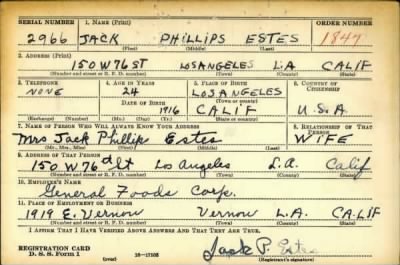 SERIAL NUMBER 1. NAME (Print) ORDER NUMBER
2966 JACK PHILLIPS ESTES 1847
(First) (Middle) (Last)
2. ADDRESS (Print)
150 W 76 ST LOS ANGELES L.A CALIF
(Number and street or R. F. D. number) (Town) (County) (State)
3. TELEPHONE 4. AGE IN YEARS 5. PLACE OF BIRTH 6. COUNTRY OF CITIZENSHIP
NONE 24 LOS ANGELES
(Town or county)
DATE OF BIRTH
1916 CALIF U.S.A
7. NAME OF PERSON WHO WILL ALWAYS KNOW YOUR ADDRESS 8. RELATIONSHIP OF THAT PERSON
Mrs Jack Phillips Estes WIFE
(Mr., Mrs., Miss) (First) (Middle) (Last)
9. ADDRESS OF THAT PERSON
150 W 76th St Los Angeles L.A. Calif
(Number and street or R. F. D. number) (Town) (County) (State)
10. EMPLOYER'S NAME
General Foods Corp.
11. PLACE OF EMPLOYMENT OR BUSINESS
1919 E. Vernon Vernon L.A. CALIF
(Number and street or R. F. D. number) (Town) (County) (State)
I AFFIRM THAT I HAVE VERIFIED ABOVE ANSWERS AND THAT THEY ARE TRUE.
REGISTRATION CARD
D. S. S. Form 1 (over) 16—17105
Jack P. Estes
(Registrant's signature)